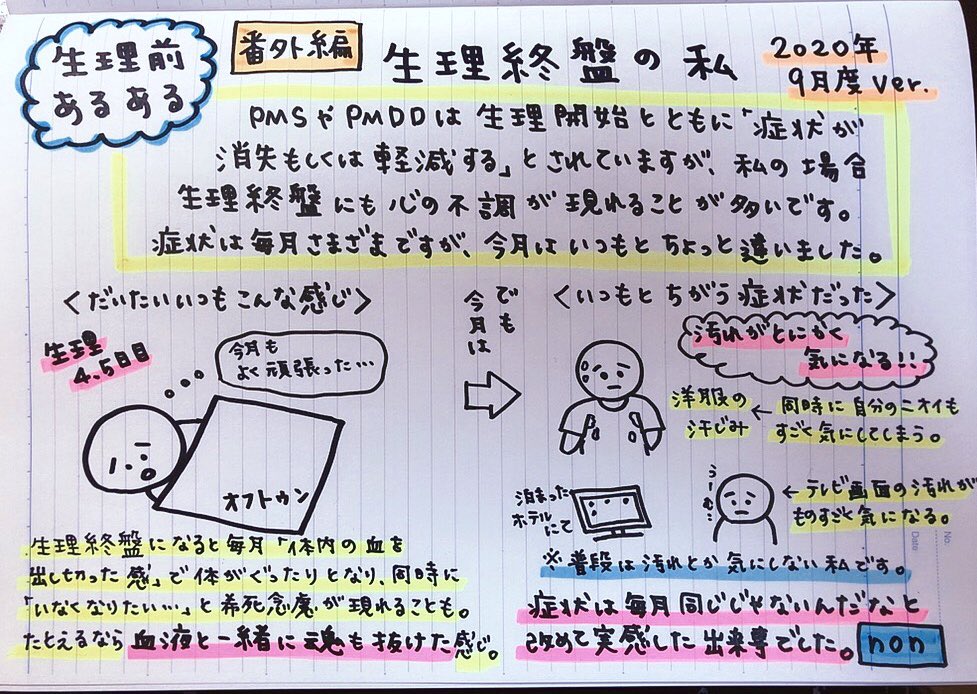 生理前
あるある
番外編
生理終盤の私
2020年
9月度 ver.
PMSやPMDDは生理開始とともに「症状が
消失もしくは軽減する」とされていますが、私の場合
生理終盤にも心の不調が現れることが多いです。
症状は毎月さまざまですが、今月はいつもとちょっと違いました。
〈だいたいいつもこんな感じ〉
生理
4.5日目
今月も
よく頑張った…
オフトゥン
生理終盤になると毎月「体内の血を
出し切った感」で体がぐったりとなり、同時に
「いなくなりたい…」と希死念慮が現れることも。
たとえるなら血液と一緒に魂も抜けた感じ。
でも
今月は
〈いつもとちがう症状だった〉
汚れがとにかく
気になる!!
洋服の
汗じみ
← 同時に自分のニオイも
すごく気にしてしまう。
泊まった
ホテルにて
うーむ…
← テレビ画面の汚れが
ものすごく気になる。
※普段は汚れとか気にしない私です。
症状は毎月同じじゃないんだなと
改めて実感した出来事でした。
non
No.
Date